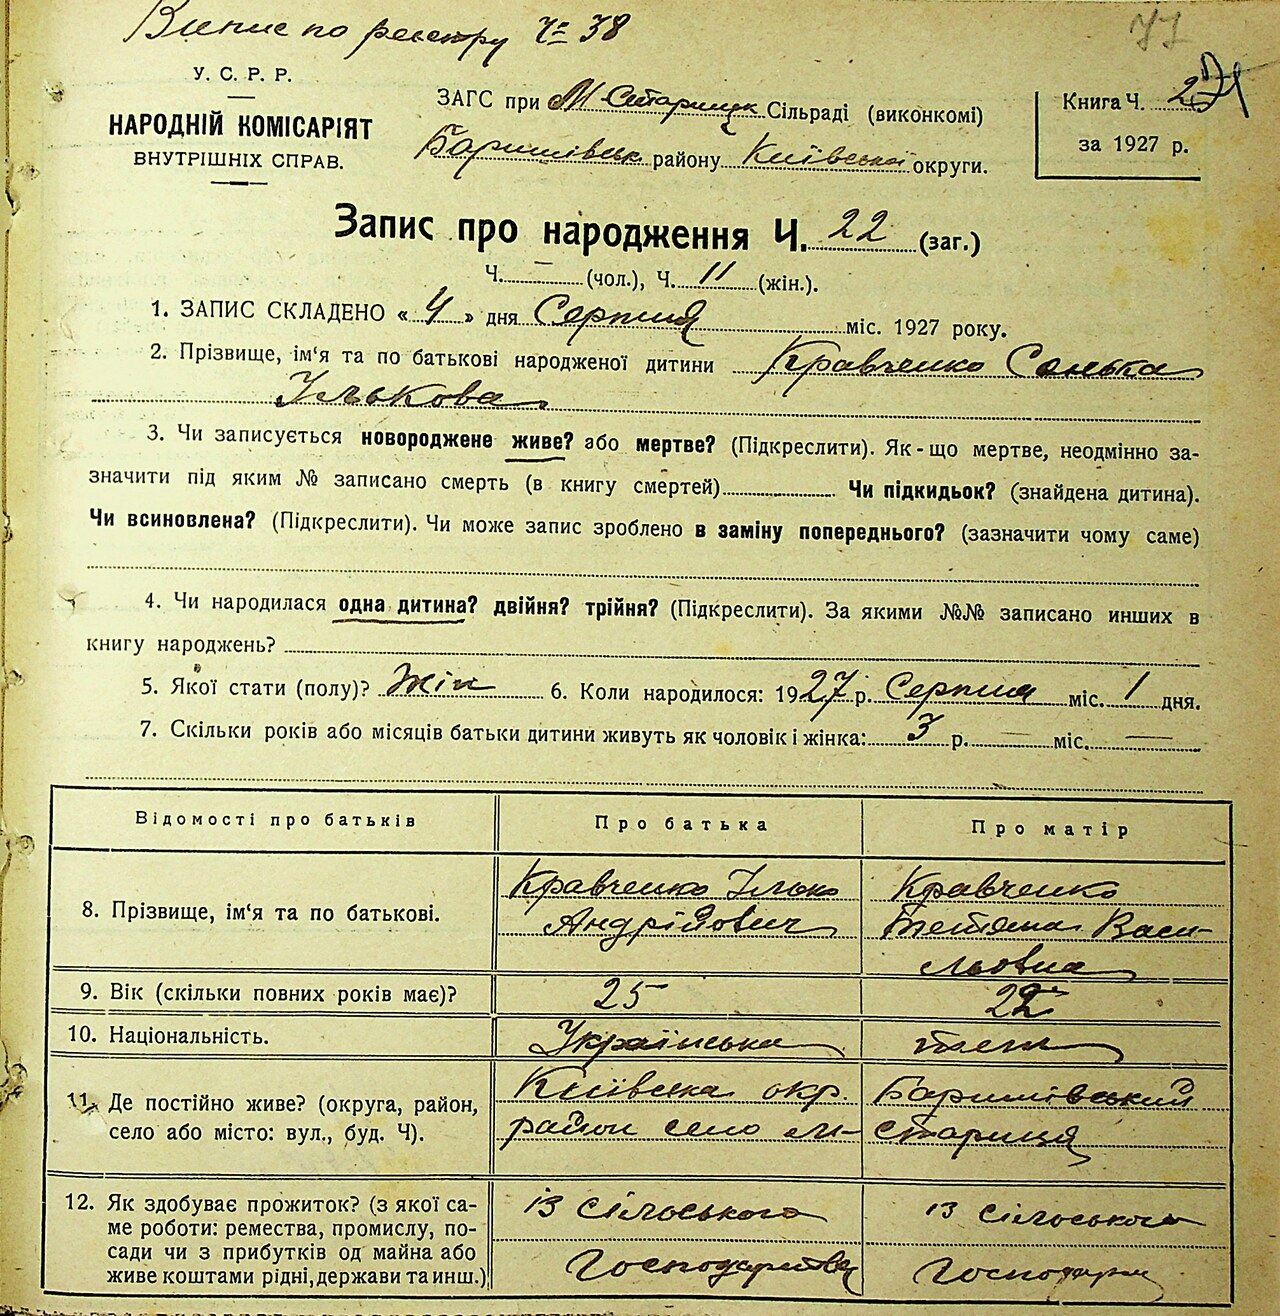 Випис по реєстру Ч= 38
77
У. С. Р. Р.
НАРОДНІЙ КОМІСАРІЯТ
ВНУТРІШНІХ СПРАВ.
ЗАГС при М Старицк. Сільраді (виконкомі)
Баришівськ району Київської округи.
Книга Ч. 2
за 1927 р.
Запис про народження Ч. 22 (заг.)
Ч. — (чол.), Ч. 11 (жін.).
1. ЗАПИС СКЛАДЕНО « 4 » дня Серпня міс. 1927 року.
2. Прізвище, ім‘я та по батькові народженої дитини Кравченко Сонька
Ількова
3. Чи записується новороджене живе? або мертве? (Підкреслити). Як-що мертве, неодмінно за-
значити під яким № записано смерть (в книгу смертей) Чи підкидьок? (знайдена дитина).
Чи всиновлена? (Підкреслити). Чи може запис зроблено в заміну попереднього? (зазначити чому саме)
4. Чи народилася одна дитина? двійня? трійня? (Підкреслити). За якими №№ записано инших в
книгу народжень?
5. Якої стати (полу)? Жін 6. Коли народилося: 1927 р. Серпня міс. 1 дня.
7. Скільки років або місяців батьки дитини живуть як чоловік і жінка: 3 р. — міс. —
Відомості про батьків Про батька Про матір
8. Прізвище, ім‘я та по батькові.
Кравченко Ілько
Андрійович
Кравченко
Тетяна Васи-
льовна
9. Вік (скільки повних років має)? 25 22
10. Національність. Українська теж
11. Де постійно живе? (округа, район,
село або місто: вул., буд. Ч).
Київська окр. Баришівський
район село М- Стариця
12. Як здобуває прожиток? (з якої са-
ме роботи: ремества, промислу, по-
сади чи з прибутків од майна або
живе коштами рідні, держави та инш.)
із сільського
Господарства
із сільського
Господарс